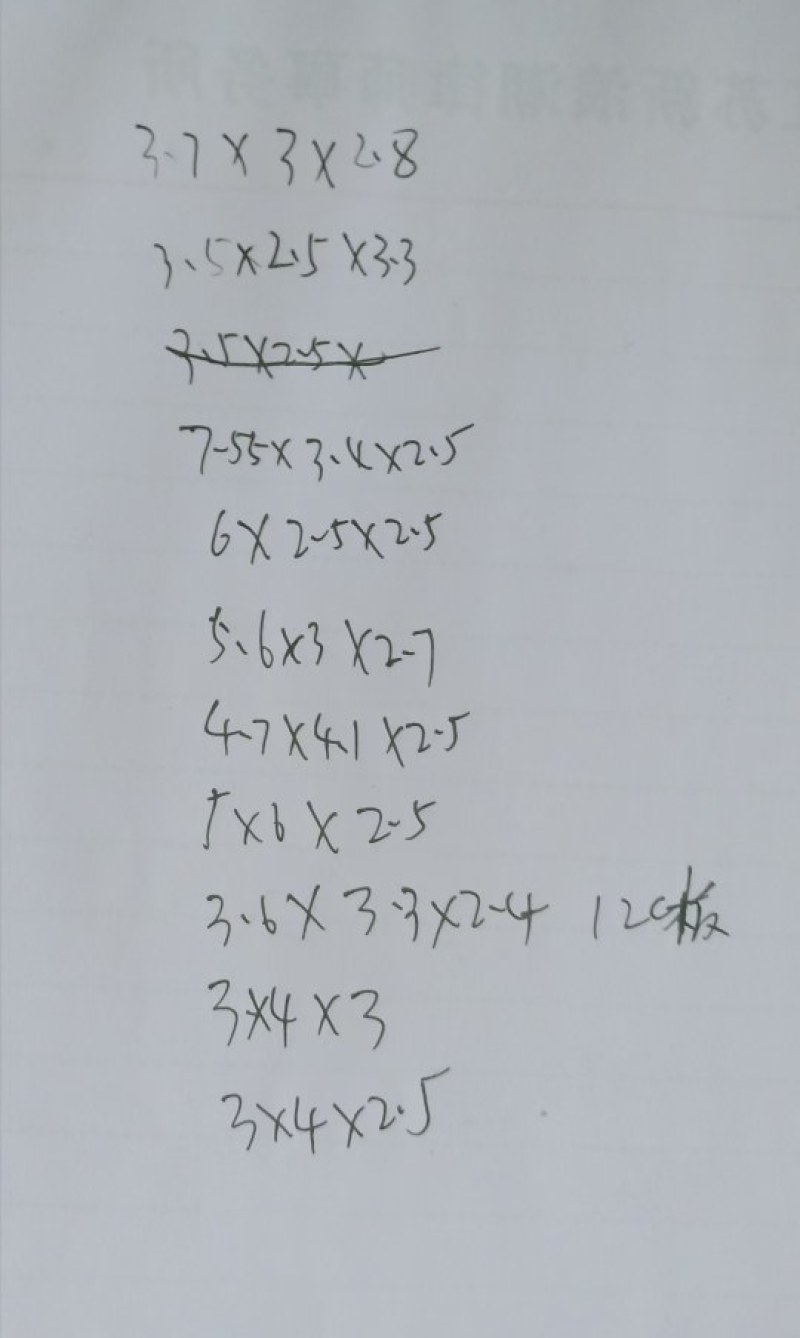 3.7×3×2.8
3.5×2.5×3.3
3.5×2.5×
7.55×3.4×2.5
6×2.5×2.5
5.6×3×2.7
4.7×4.1×2.5
5×6×2.5
3.6×3.3×2.4 120板
3×4×3
3×4×2.5